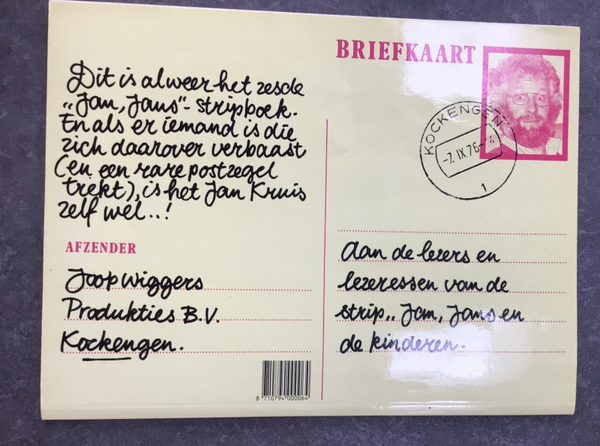 BRIEFKAART
Dit is alweer het zesde
„Jan, Jans"-stripboek.
En als er iemand is die
zich daarover verbaast
(en een rare postzegel
trekt), is het Jan Kruis
zelf wel..!
KOCKENGEN
-7.IX.76-
1
AFZENDER
Joop Wiggers
Produkties B.V.
Kockengen.
Aan de lezers en
lezeressen van de
strip „Jan, Jans en
de kinderen.
8 710794 000064